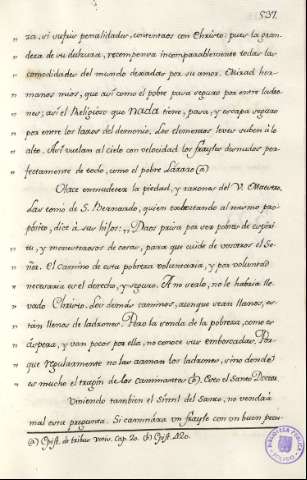 537.
za, ni sufrir penalidades, contentaos con Christo: pues la gran-
deza de su dulzura, recompensa incomparablemente todas las
comodidades del mundo dexadas por su amor. Mirad her-
manos mios, que asi como el pobre pasa seguro por entre ladro-
nes; asi el Religioso que nada tiene, pasa, y escapa seguro
por entre los lazos del demonio. Los elementos leves suben à lo
alto. Asi vuelan al cielo con velocidad los frayles desnudos per-
fectamente de todo, como el pobre Lázaro (a)
Hace enmudecer la piedad, y razones del V. Maestro
Las tomó de S. Bernardo, quien exhortando al mismo pro-
pósito, dice à sus hijos: Daos prisa por ser pobres de espíri-
tu, y menesterosos de cosas, para que cuide de vosotros el Se-
ñor. El camino de esta pobreza voluntaria, y por voluntad
necesaria es el derecho, y seguro. A no serlo, no le habria lle-
vado Christo. Los demás caminos, aunque sean llanos, es-
tán llenos de ladrones. Pero la senda de la pobreza, como es
áspera, y van pocos por ella, no conoce sus emboscadas. Por-
que regularmente no las arman los ladrones, sino donde
es mucho el tragin de los caminantes (b). Esto el Santo Doctor.
Viniendo tambien el simil del Santo, no vendrá
mal esta pregunta. Si caminára un frayle con un buen pecu-
(a) Epist. de tribus votis. Cap. 20. (b) Epist. 420.